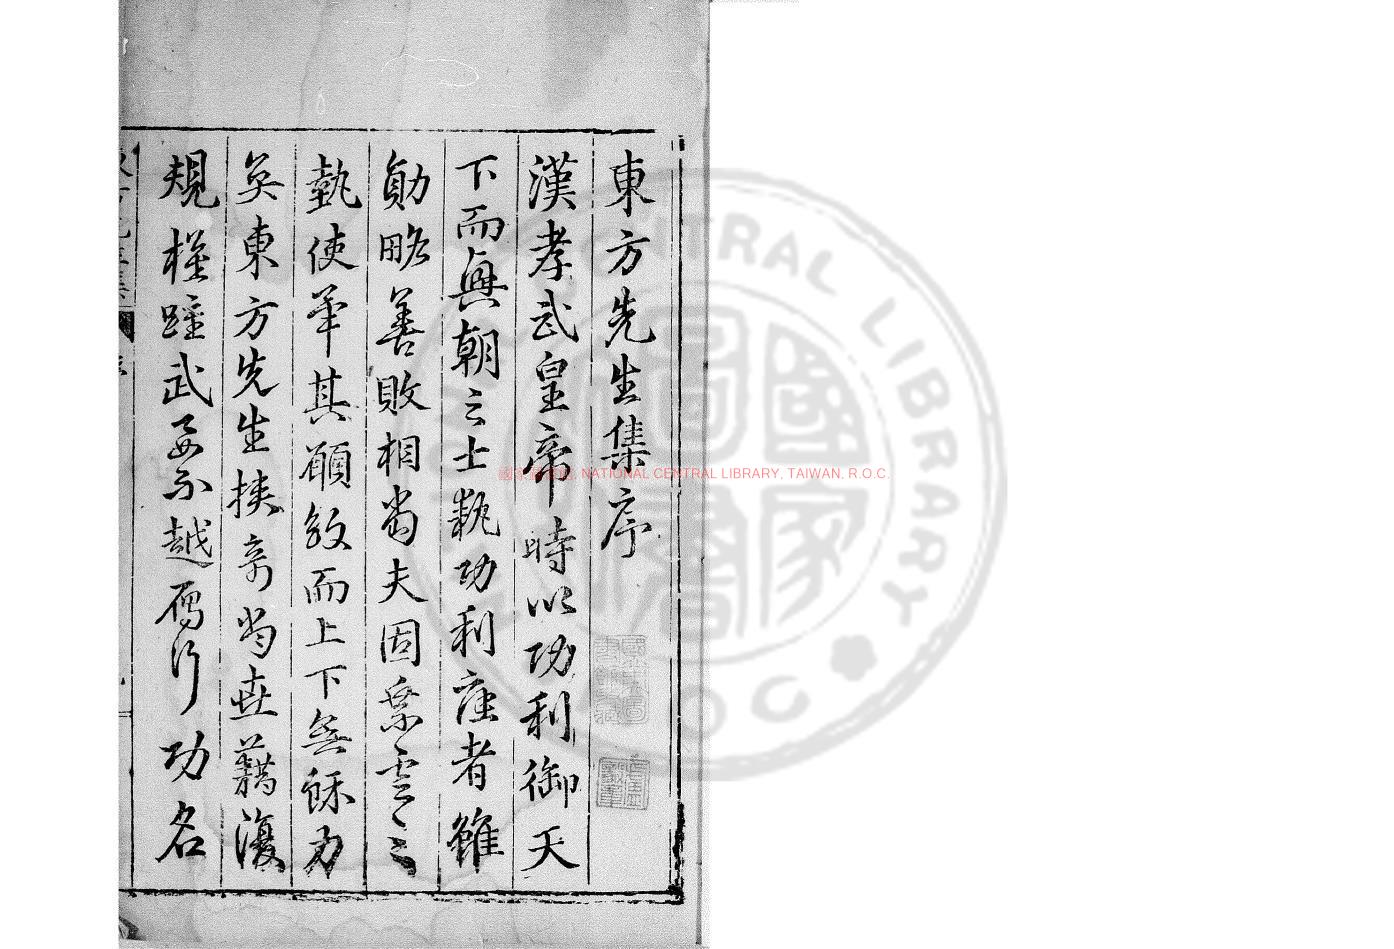 東方先生集序
漢孝武皇帝時以功利御天
下而輿朝之士執功利座者雖
勛略善敗相當夫固乘雲之
執使卒其願效而上下無穌力
矣東方先生挾奇當世藉復
規模踵武要不越鴈行功名
國家圖書館 NATIONAL CENTRAL LIBRARY, TAIWAN, R.O.C.